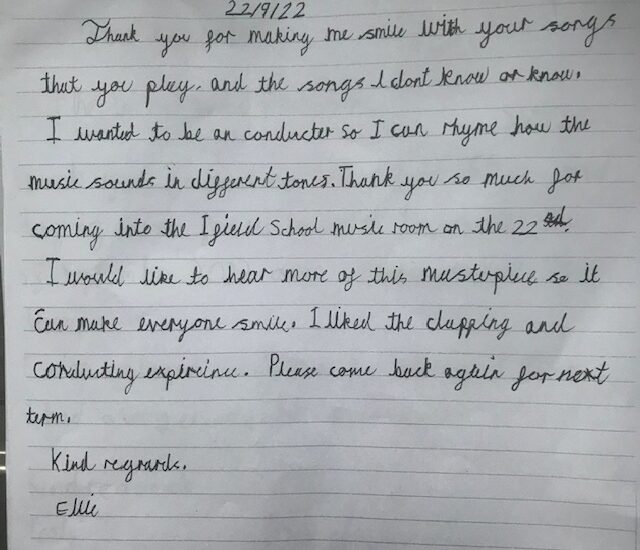 22/9/22
Thank you for making me smile with your songs
that you play. and the songs I dont know or know.
I wanted to be an conducter so I can rhyme how the
music sounds in different tones. Thank you so much for
coming into the Ifield School music room on the 22
I would like to hear more of this masterpiece so it
can make everyone smile. I liked the clapping and
conducting expircince. Please come back again for next
term.
Kind regrards.
Ellie